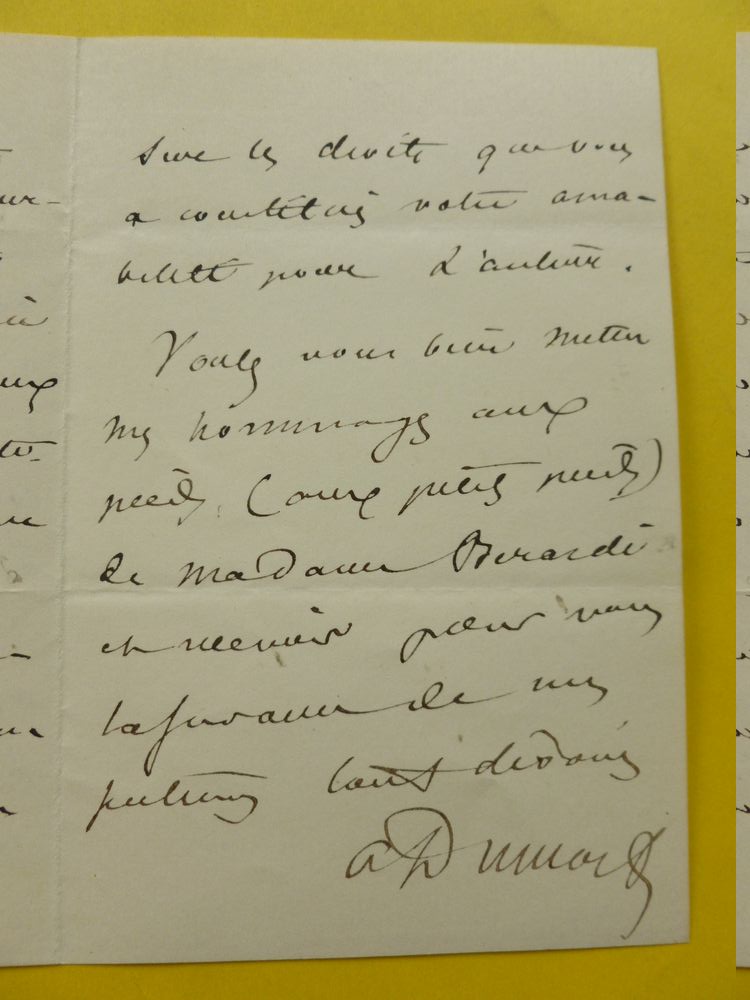 sur les droits que vous
a constitués votre ama-
bilité pour L'auteur.
Voulez vous bien mettre
mes hommages aux
pieds (aux petits pieds)
de madame Berardi
et recevoir pour vous
l'assurance de mes
sentimens tout dévoués
A Dumas